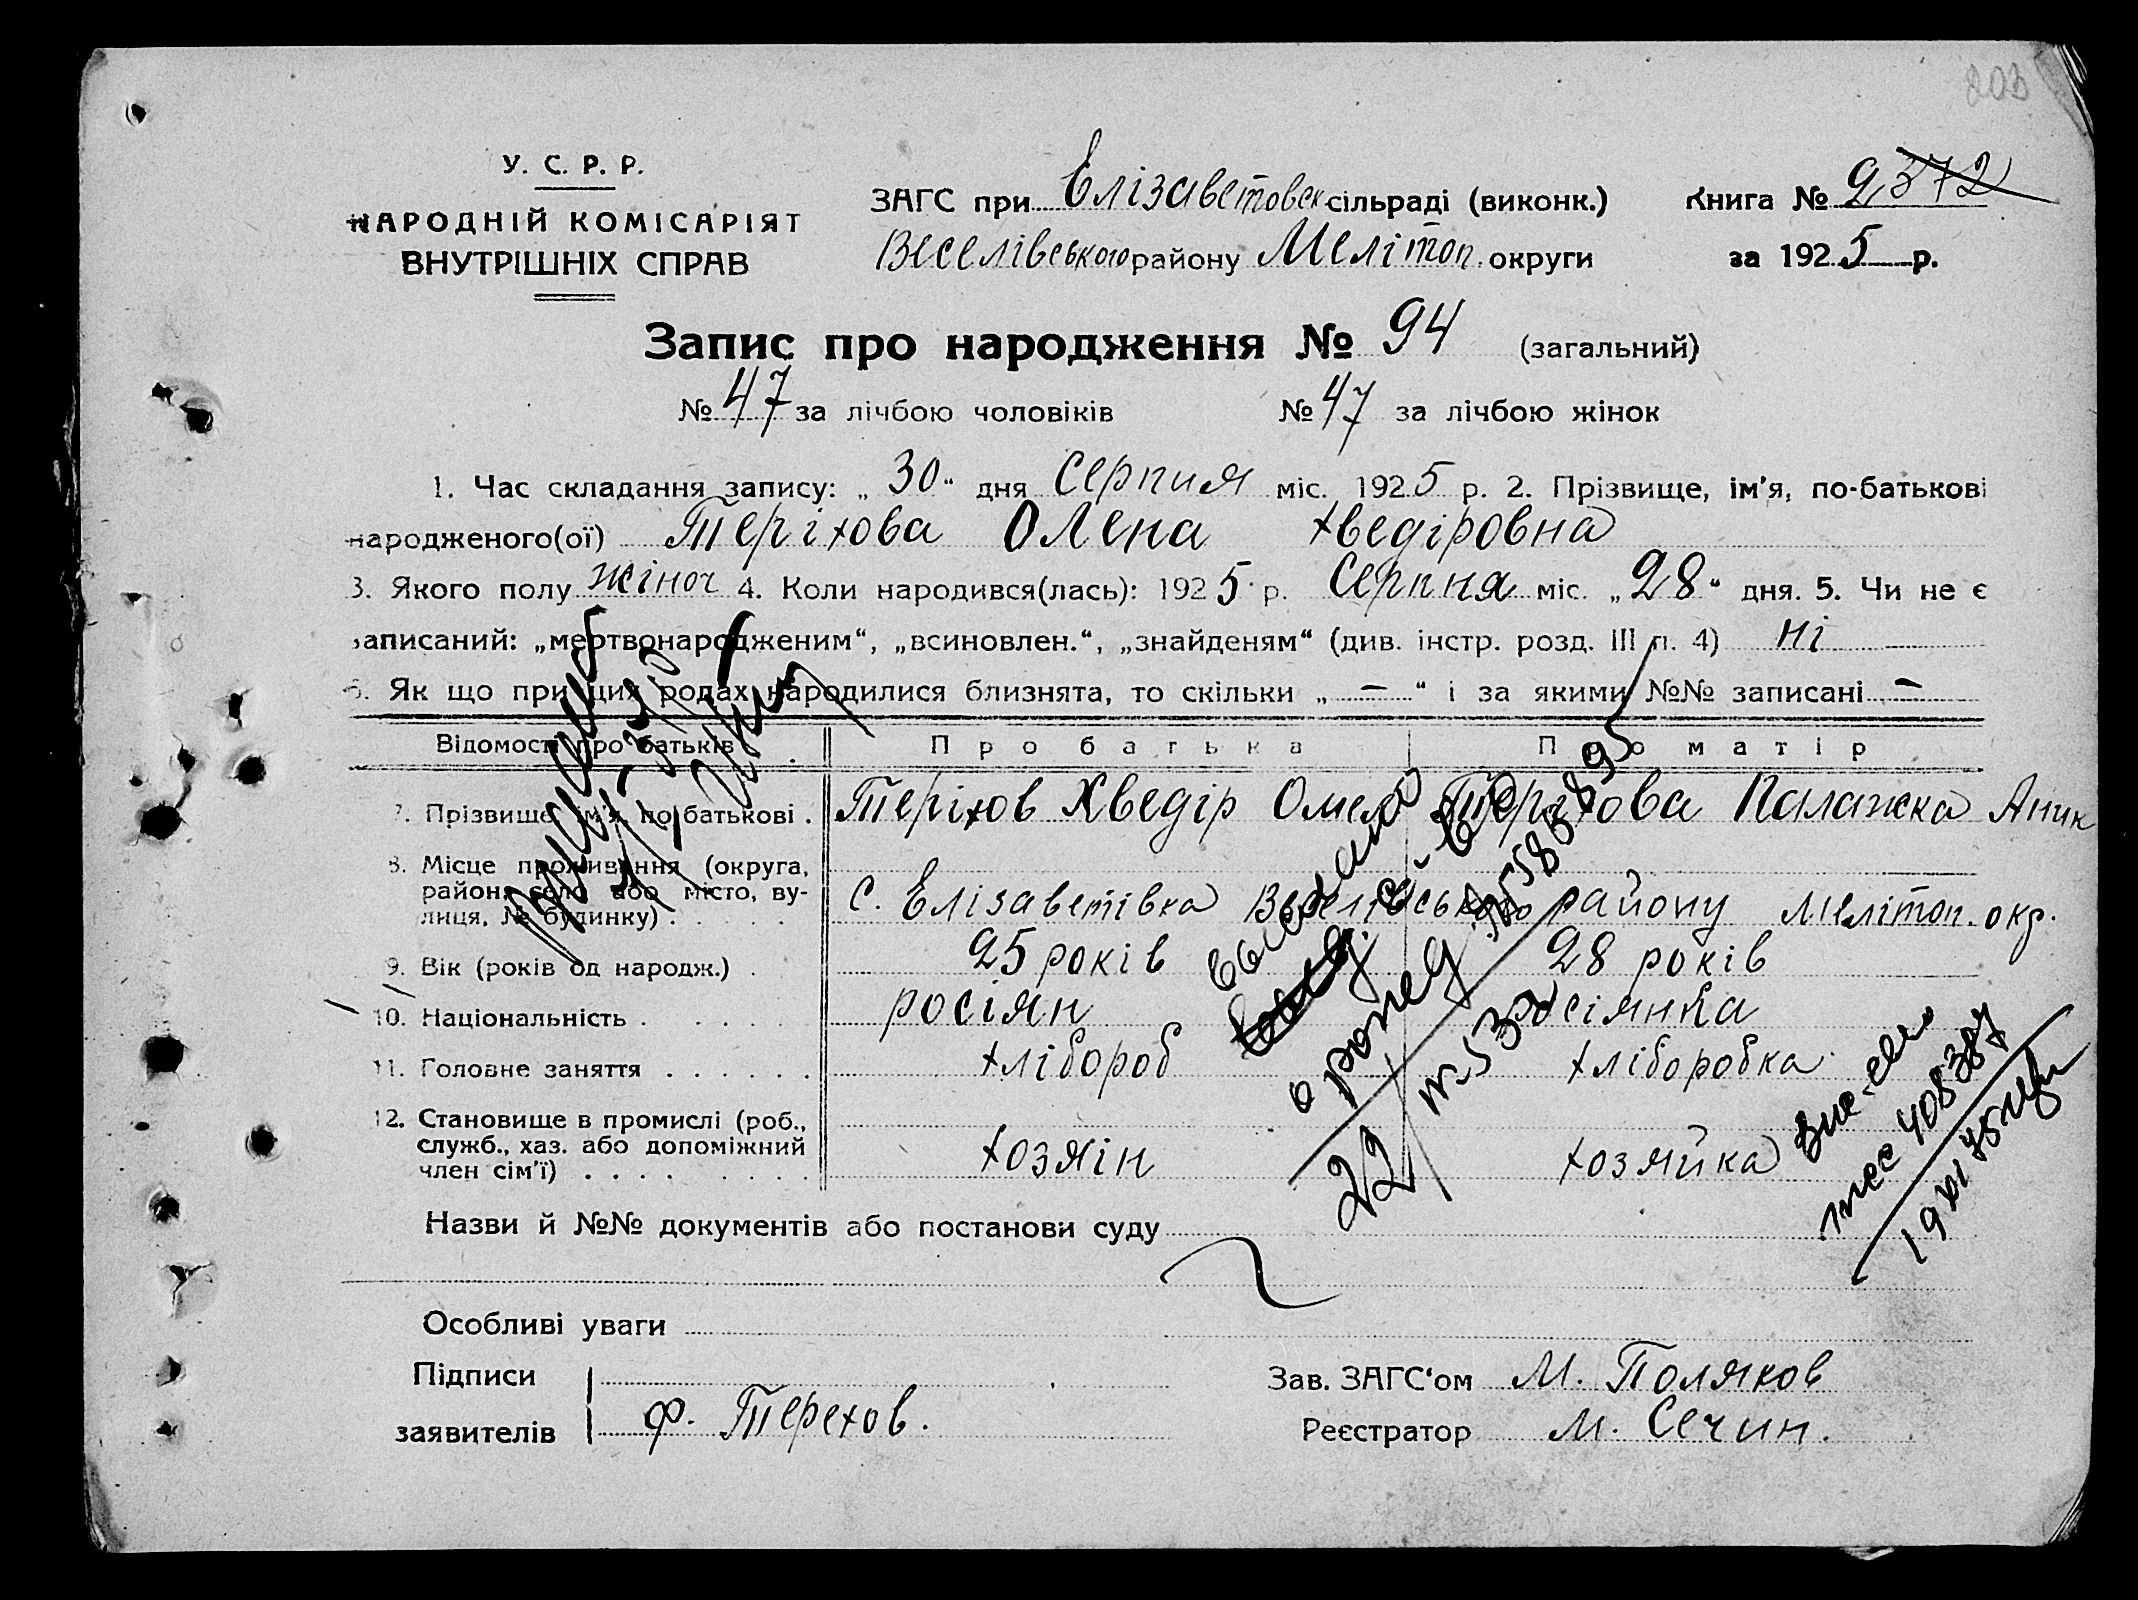 203
У. С. Р. Р.
НАРОДНІЙ КОМІСАРІЯТ
ВНУТРІШНІХ СПРАВ
ЗАГС при Елізаветовск сільраді (виконк.)
Веселівського району Мелітоп. округи
Книга № 2372
за 1925 р.
Запис про народження № 94 (загальний)
№ 47 за лічбою чоловіків № 47 за лічбою жінок
1. Час складання запису: „30“ дня Серпня міс. 1925 р. 2. Прізвище, ім'я, по-батькові
народженого(ої) Теріхова Олена Хведіровна
3. Якого полу жіноч 4. Коли народився(лась): 1925 р. Серпня міс. „28“ дня. 5. Чи не є
записаний: „мертвонародженим“, „всиновлен.“, „знайденям“ (див. інстр. розд. III п. 4) ні
6. Як що при цих родах народилися близнята, то скільки „ — “ і за якими №№ записані —
Відомості про батьків Про батька Про матір
7. Прізвище, ім'я, по-батькові . Теріхов Хведір Омел Теріхова Палажка Аник
8. Місце проживання (округа,
район, село або місто, ву-
лиця, № будинку) . . . . с. Елізаветівка Веселівського району Мелітоп. окр.
9. Вік (років од народж.) . 25 років 28 років
10. Національність . . . . . росіян росіянка
11. Головне заняття . . . . . . хлібороб хліборобка
12. Становище в промислі (роб.,
служб., хаз. або допоміжний
член сім'ї) . . . . . . . . хозяін хозяйка
Назви й №№ документів або постанови суду
Особливі уваги
Підписи
заявителів Ф. Терехов.
Зав. ЗАГС'ом М. Поляков
Реєстратор М. Сечин.